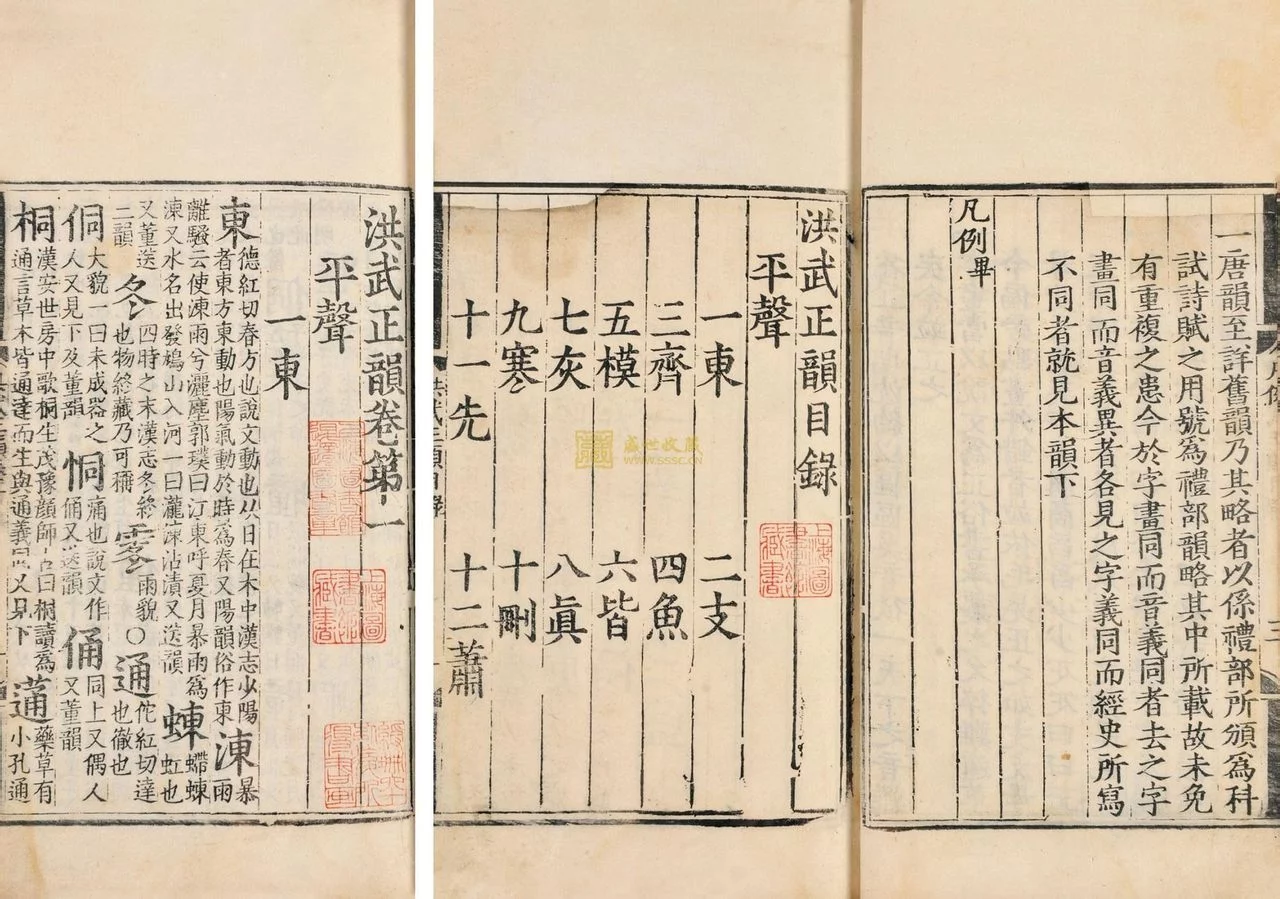 一唐韻至詳舊韻乃其略者以係禮部所頒爲科
試詩賦之用號爲禮部韻略其中所載故未免
有重複之患今於字畫同而音義同者去之字
畫同而音義異者各見之字義同而經史所寫
不同者就見本韻下
凡例畢
洪武正韻目錄
平聲
一東 二支
三齊 四魚
五模 六皆
七灰 八眞
九寒 十刪
十一先 十二蕭
盛世收藏
WWW.SSSC.CN
洪武正韻卷第一
平聲
一東
東德紅切春方也說文動也从日在木中漢志少陽者東方東動也陽氣動於時爲春又陽韻俗作東涷暴雨
離騷云使涷雨兮灑塵郭璞曰江東呼夏月暴雨爲涷又水名出發鳩山入河一曰瀧涷沾漬又送韻蝀螮蝀虹也
又董送二韻冬四時之末漢志冬終也物終藏乃可稱雨貌○通佗紅切達也徹也
侗大貌一曰未成器之人又見下及董韻恫痛也說文作又送韻俑同上又偶人又董韻
桐漢安世房中歌桐生茂豫顏師古曰桐讀爲通言草木皆通達而生與通義同又見下蓪藥草有小孔通